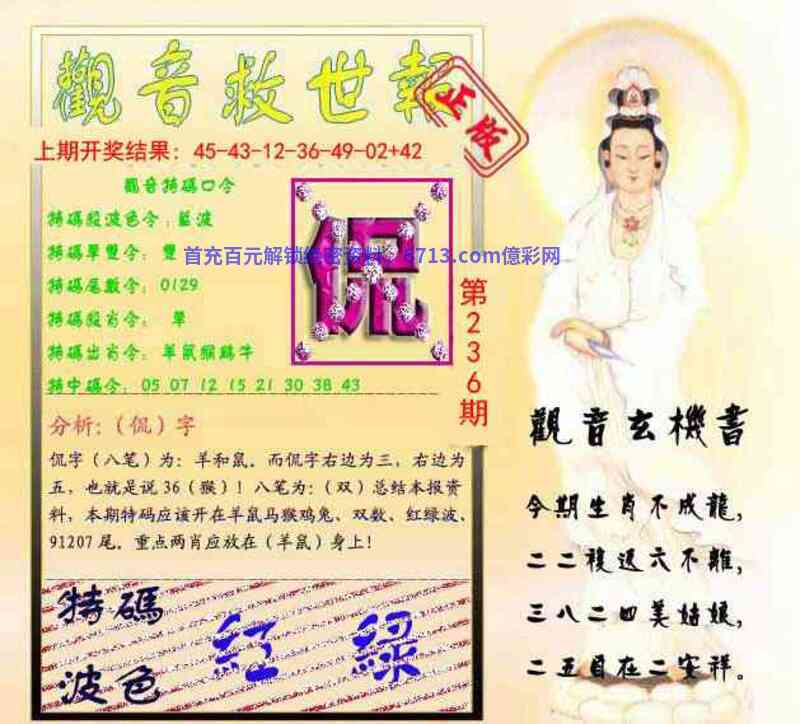 觀音救世報
正版
上期开奖结果：45-43-12-36-49-02+42
觀音特碼口令
特碼殺波色令：藍波
特碼單雙令：雙
首充百元解锁
6713.com億彩网
特碼尾數令：0129
特碼殺肖令：單
特碼出肖令：羊鼠猴雞牛
特中碼令：05 07 12 15 21 30 38 43
侃
第236期
分析：（侃）字
侃字（八笔）为：羊和鼠．而侃字右边为三，右边为
五，也就是说36（猴）！八笔为：（双）总结本报资
料，本期特码应该开在羊鼠马猴鸡兔、双数、红绿波、
91207尾．重点两肖应放在（羊鼠）身上！
特碼
波色
紅 綠
觀音玄機書
今期生肖不成龍，
二二複返六不離，
三八二四美姑娘，
二五自在二安祥。